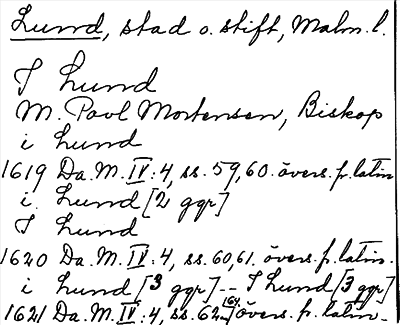 Lund, stad o. stift, Malm. l.
I Lund
M. Povl Mortensen, Biskop
i Lund
1619 Da. M. IV: 4, ss. 59, 60. övers. fr. latin
i Lund [2 ggr]
I Lund
1620 Da. M. IV: 4, ss. 60, 61. övers. fr. latin.
i Lund [3 ggr] -- I Lund [3 ggr]
1621 Da. M. IV: 4, ss. 62- övers. fr. latin.